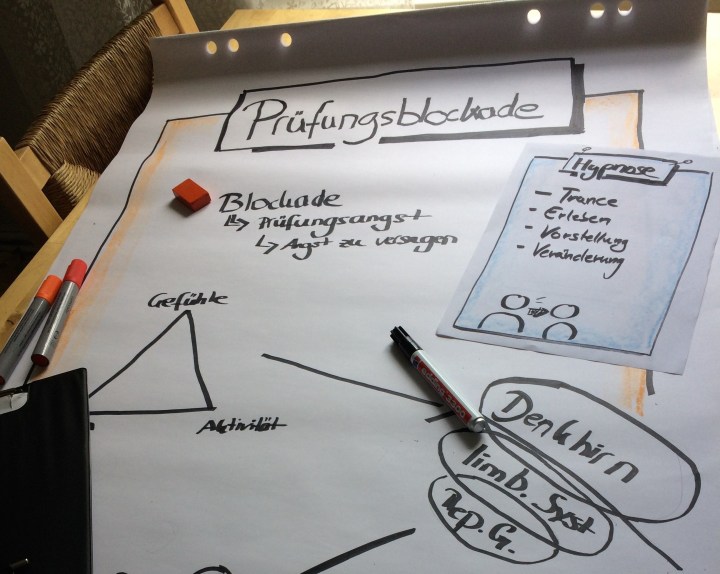 Prüfungsblockade
Blockade
Prüfungsangst
Angst zu versagen
Hypnose
- Trance
- Erleben
- Vorstellung
- Veränderung
Gefühle
Aktivität
Denkhirn
limb. Syst
Rep. G.